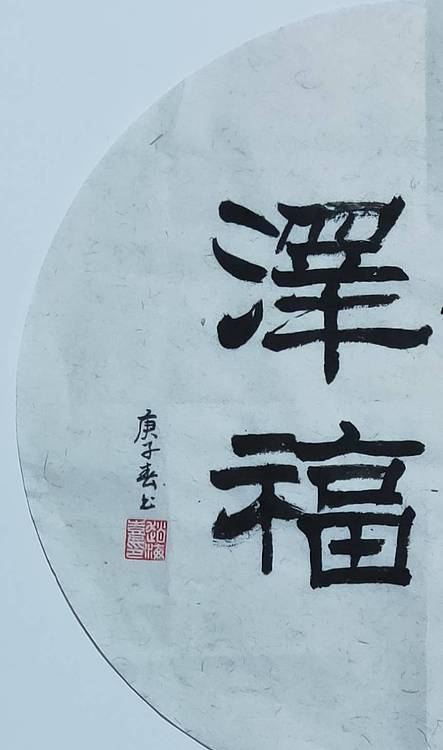 澤福
庚子春书